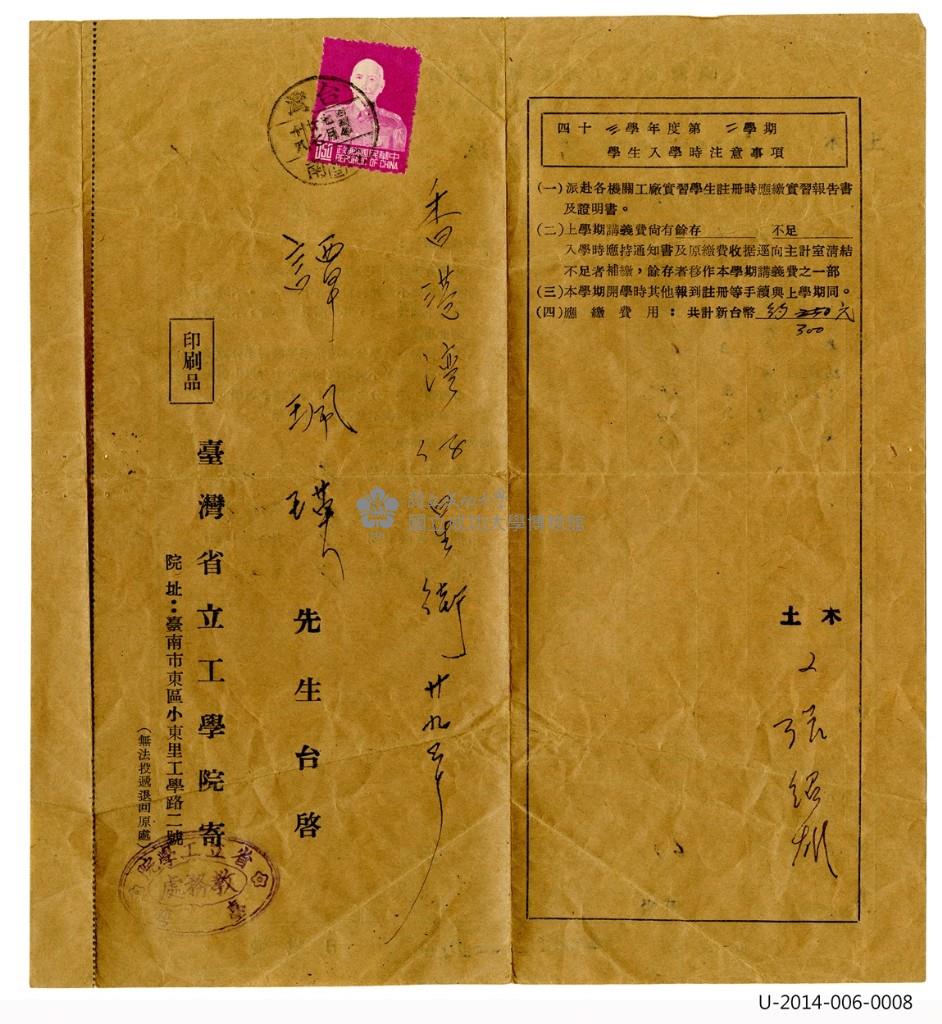 四十三學年度第二學期
學生入學時注意事項
(一)派赴各機關工廠實習學生註冊時應繳實習報告書
及證明書。
(二)上學期講義費尚有餘存 不足
入學時應持通知書及原繳費收据逕向主計室清結
不足者補繳，餘存者移作本學期講義費之一部
(三)本學期開學時其他報到註冊等手續與上學期同。
(四)應繳費用：共計新台幣約 250 元
300
土木
2 張紹雄
香港灣仔星街廿九号
譚珮瑋先生台啓
印刷品
臺灣省立工學院寄
院址：臺南市東區小東里工學路二號
(無法投遞退回原處)
省立工學院
教務處
050
中華民國郵政
REPUBLIC OF CHINA
台灣
國立成功大學博物館
U-2014-006-0008